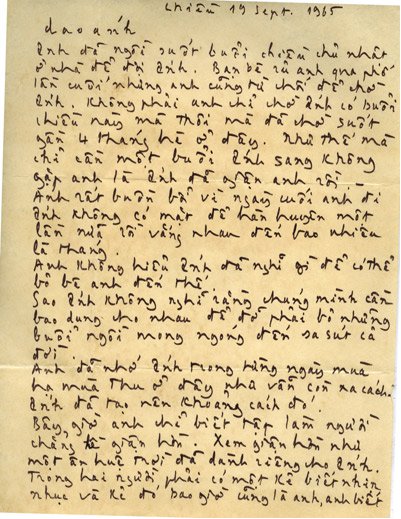 chiều 19 Sept. 1965
dao ánh
Ánh đã ngồi suốt buổi chiều chủ nhật
ở nhà để đợi Ánh. Bạn bè rủ anh qua phố
lần cuối nhưng anh cũng từ chối để chờ
Ánh. Không phải anh chỉ chờ Ánh có buổi
chiều này mà thôi mà đã chờ suốt
gần 4 tháng hè ở đây. Như thế mà
chỉ cần một buổi Ánh sang không
gặp anh là Ánh đã giận anh rồi.
Anh rất buồn bã vì ngày cuối anh đi
Ánh không có mặt để hàn huyên một
lần nữa rồi vắng nhau đến bao nhiêu
là tháng.
Anh không hiểu Ánh đã nghĩ gì để có thể
bỏ bê anh đến thế.
Sao Ánh không nghĩ rằng chúng mình cần
bao dung cho nhau để đỡ phải bỏ những
buổi ngồi mong ngóng đến sa sút cả
đời.
Anh đã nhớ Ánh trong từng ngày mùa
hạ mùa thu ở đây như vẫn còn xa cách.
Ánh đã tạo nên khoảng cách đó.
Bây giờ anh chỉ biết tập làm người
chẳng giận hờn. Xem giận hờn như
một ân huệ trời đã dành riêng cho Ánh.
Trong hai người, phải có một kẻ biết nhịn
nhục và kẻ đó bao giờ cũng là anh, anh biết